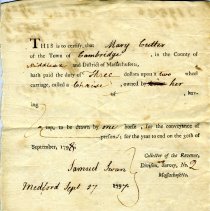 THIS is to certify, that Mary Cutter
of the Town of Cambridge, in the County
of Middlesex and District of Massachusetts,
hath paid the duty of Three dollars upon a two wheel
carriage, called a Chaise, owned by her
of , hav-
ing
top, to be drawn by one horse, for the conveyance of
person, for the year to end on the 30th of
September, 1798.
Samuel Swan Collector of the Revenue,
Division, Survey, No. 2
Massachusetts.
Medford Sept 27 1797.